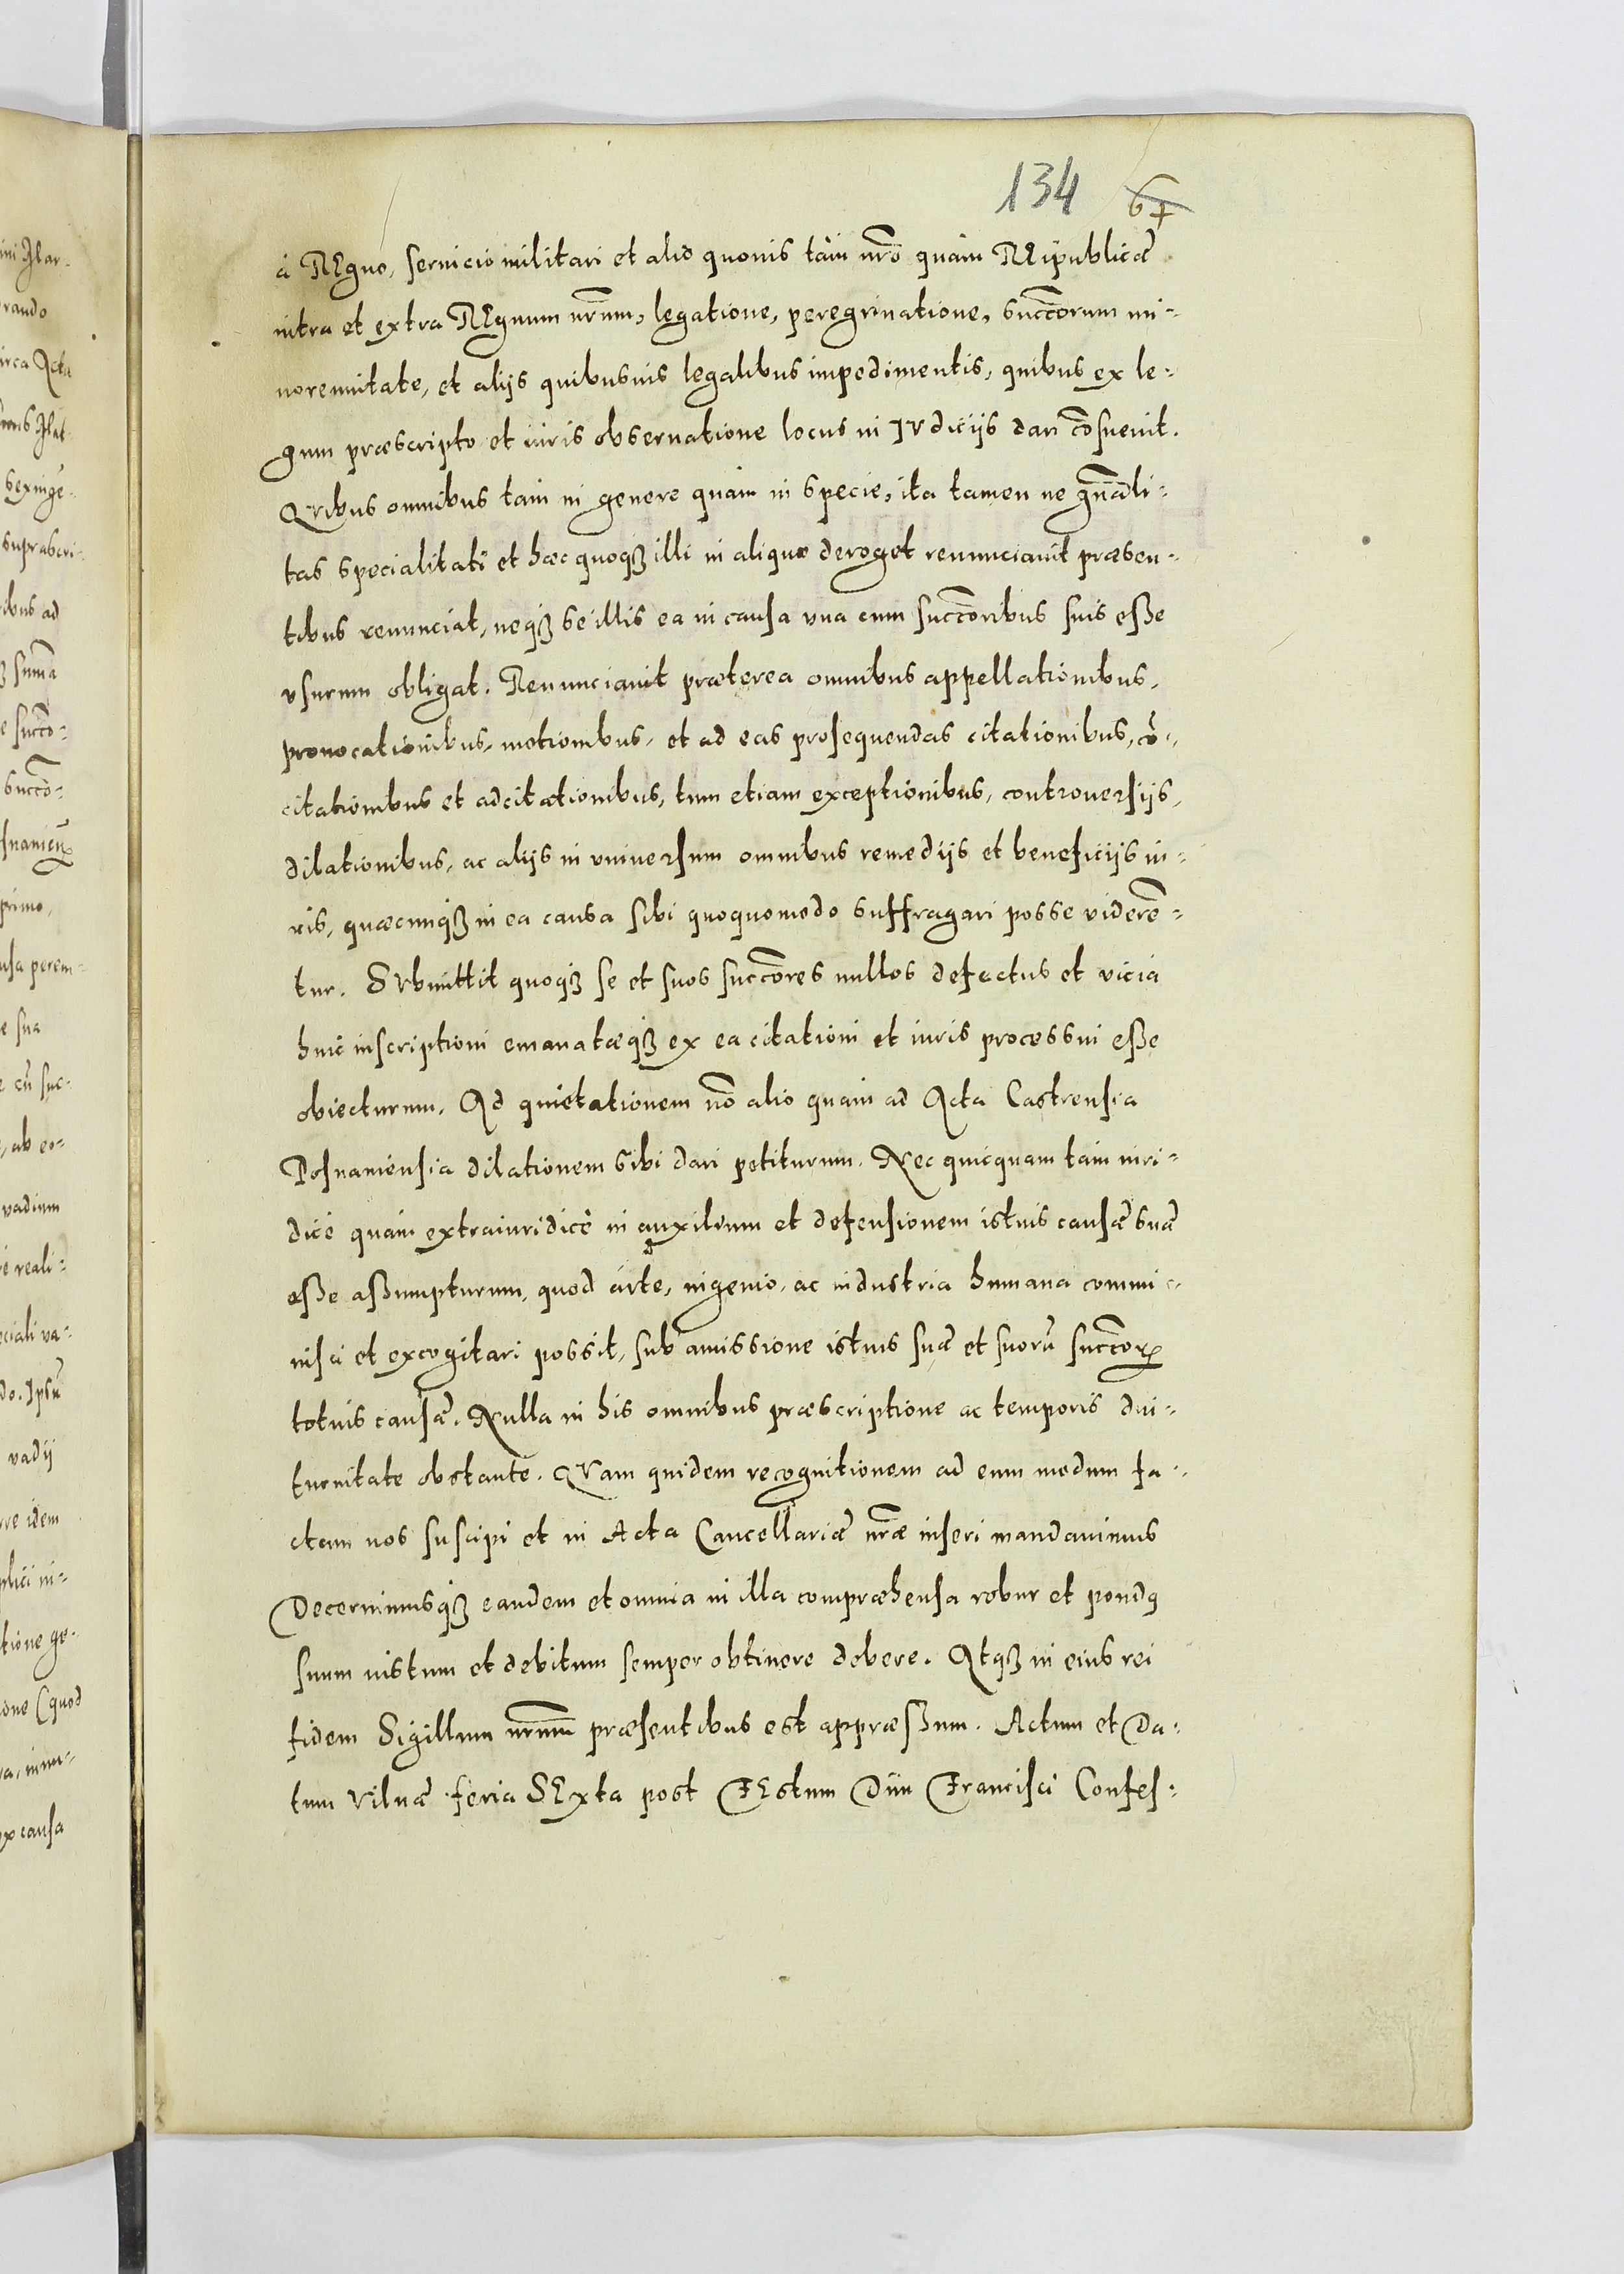 134 67
à REgno, seruicio militari et alio quouis tàm nrō quàm REipublicæ
intra et extra REgnum nrūm, legatione, peregrinatione, succōrum mi-
norennitate, et alijs quibusuis legalibus impedimentis, quibus ex le-
gum præscripto et iuris obseruatione locus in IVdicijs dari cōsueuit.
QVibus omnibus tàm in genere quàm in specie, ita tamen ne gn̄ali-
tas specialitati et hæc quoqȝ illi in aliquo deroget renunciauit præsen-
tibus renunciat, neqȝ se illis ea in causa vna cum succōribus suis eße
vsurum obligat. Renunciauit præterea omnibus appellationibus,
prouocationibus, motionibus, et ad eas prosequendas citationibus, cō-
citationibus et adcitationibus, tum etiam exceptionibus, controuersijs,
dilationibus, ac alijs in vniuersum omnibus remedijs et beneficijs iu-
ris, quæcunqȝ in ea causa sibi quoquomodo suffragari posse viderē-
tur. SVbmittit quoqȝ se et suos succōres nullos defectus et vicia
huic inscriptioni emanatæqȝ ex ea citationi et iuris processui eße
obiecturum. Ad quietationem nō alio quàm ad Acta Castrensia
Posnaniensia dilationem sibi dari petiturum. Nec quicquam tàm iuri-
dicè quàm extraiuridicè in auxilium et defensionem istius causæ suæ
eße aßumpturum, quod arte, ingenio, ac industria humana commi-
nisci et excogitari possit, sub amissione istius suæ et suorū succōrꝝ
totius causæ. Nulla in his omnibus præscriptione ac temporis diu-
turnitate obstante. QVam quidem recognitionem ad eum modum fa-
ctam nos suscipi et in Acta Cancellariæ nr̄æ inseri mandauimus
Decernimusqȝ eandem et omnia in illa compræhensa robur et pondꝯ
suum iustum et debitum semper obtinere debere. Atqȝ in eius rei
fidem Sigillum nrūm præsentibus est appræßum. Actum et Da-
tum Vilnæ feria SExta post FEstum Diui Francisci Confes-